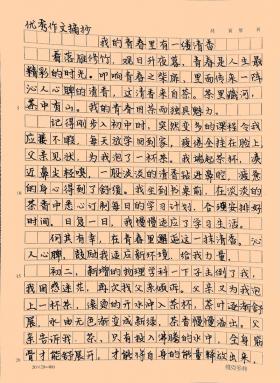 优秀作文摘抄
我的青春里有一缕清香
看落雁修竹，观日升夜落，青春是人生最
精彩的时光。叩响青春之柴扉，里面传来一阵
沁人心脾的清香，这清香来自茶。茶里藏河，
茶中有山，我的青春因茶而独具魅力。
记得刚步入初中时，突然变多的课程令我
应接不暇，每天放学回到家，疲倦全挂在脸上，
父亲见状，为我泡了一杯茶。我端起茶杯，凑
近鼻尖轻嗅，一股淡淡的清香钻进鼻腔，疲惫
的身心得到了舒缓。我坐到书桌前，在淡淡的
茶香中悉心订制每日的学习计划，合理安排好
时间。日复一日，我慢慢适应了学习生活。
何其有幸，在青春里邂逅这一抹清香。沁
人心脾，鼓励我适应新环境，给我力量。
初二，新增的物理学科一下子击倒了我，
我困惑迷茫，再次找父亲倾诉。父亲又为我泡
上一杯茶。滚烫的开水冲入茶杯，茶叶逐渐舒
展，水由无色渐变成新绿，茶香慢慢溢出。父
亲告诉我，茶，只有投入沸腾的水中，全身筋
骨才能舒展开，才能将自身的能量释放出来。
20×20=400